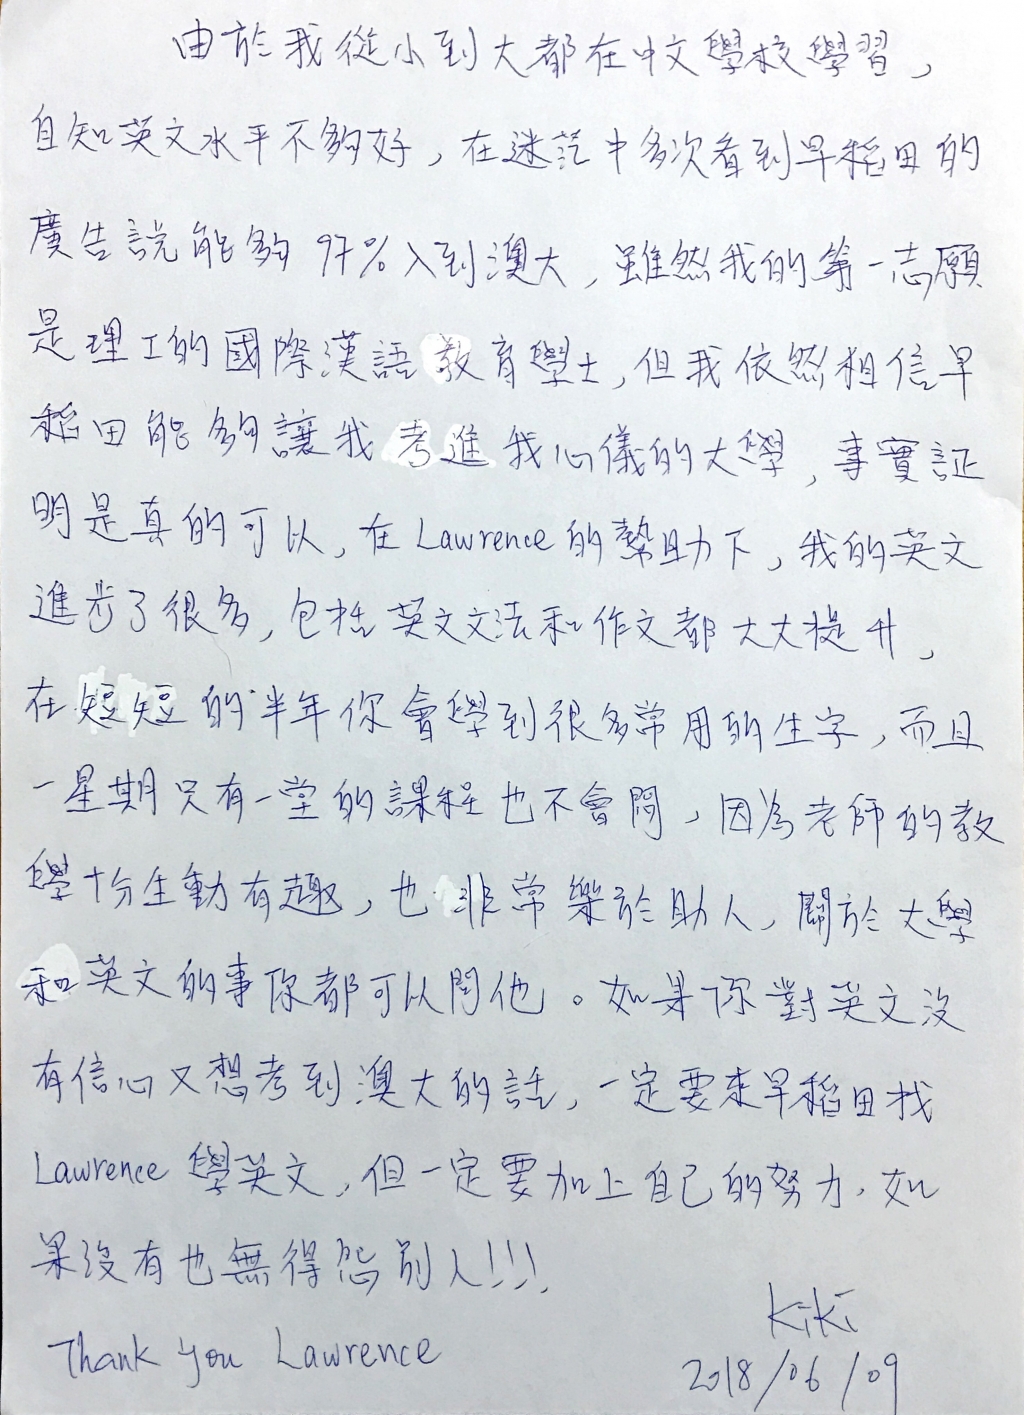 由於我從小到大都在中文學校學習，
自知英文水平不夠好，在迷茫中多次看到早稻田的
廣告說能夠97%入到澳大，雖然我的第一志願
是理工的國際漢語教育學士，但我依然相信早
稻田能夠讓我考進我心儀的大學，事實証
明是真的可以，在Lawrence的幫助下，我的英文
進步了很多，包括英文文法和作文都大大提升，
在短短的半年你會學到很多常用的生字，而且
一星期只有一堂的課程也不會悶，因為老師的教
學十分生動有趣，也非常樂於助人，關於大學
和英文的事你都可以問他。如果你對英文沒
有信心又想考到澳大的話，一定要來早稻田找
Lawrence學英文，但一定要加上自己的努力，如
果沒有也無得怨別人!!!
Kiki
Thank you Lawrence
2018/06/09